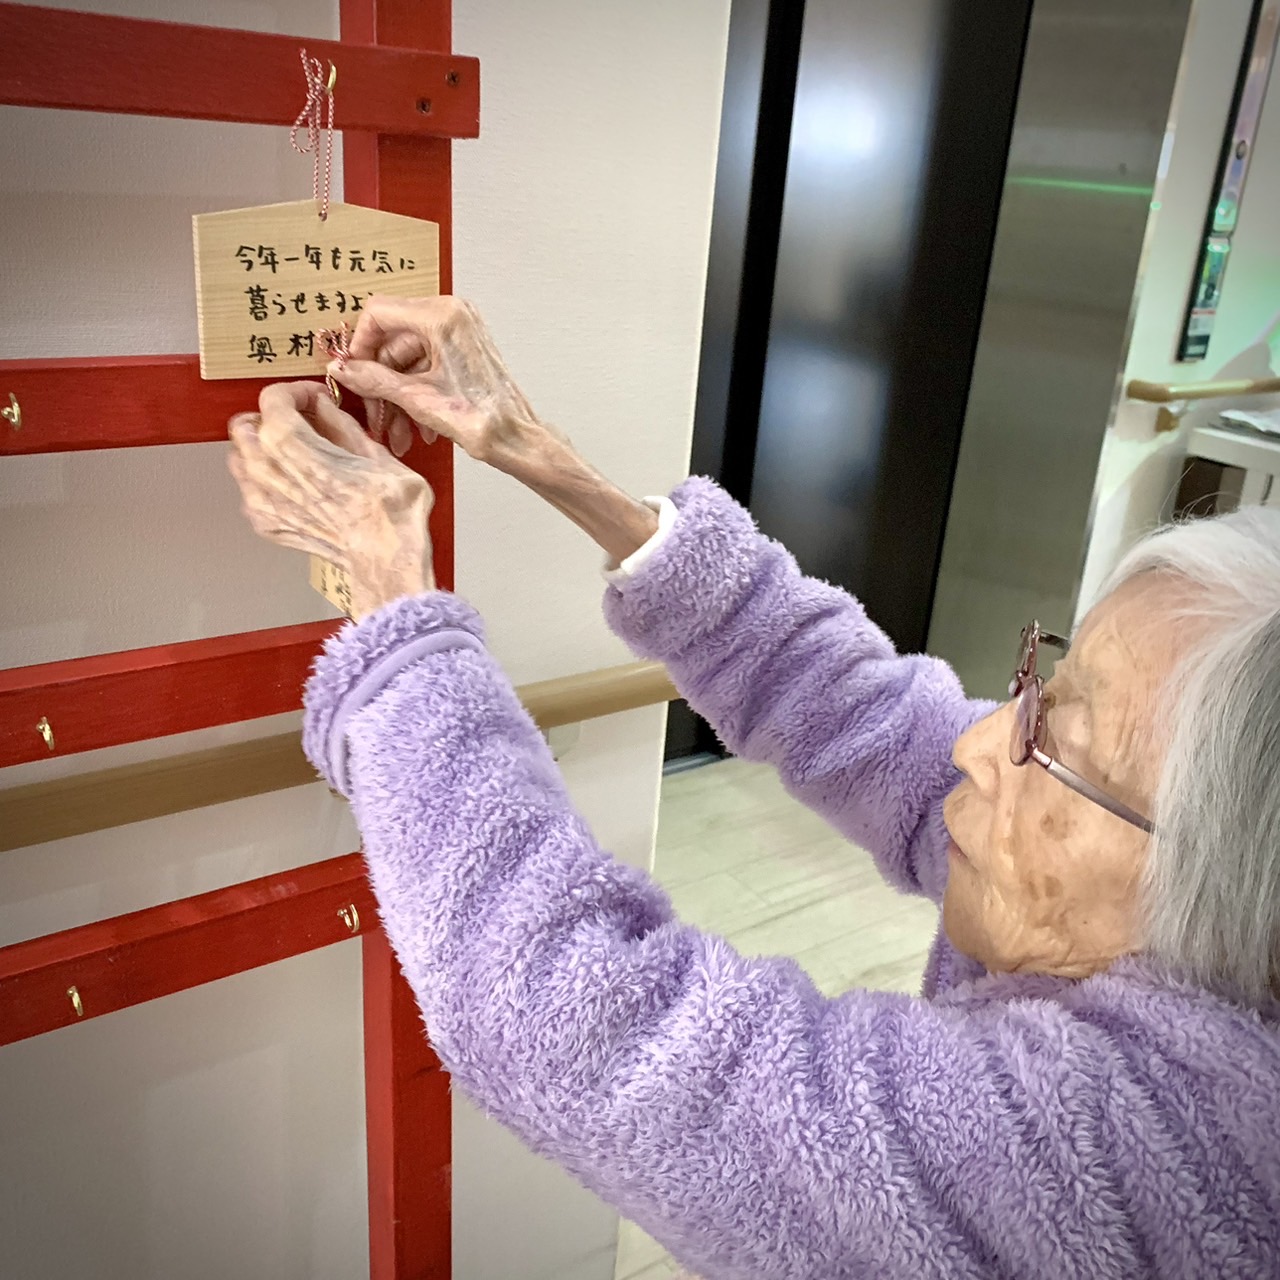 今年一年も元気に
暮らせますよ
奥村